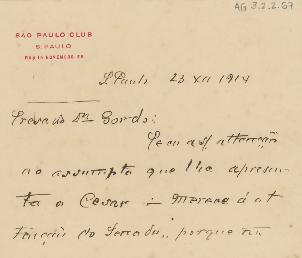 AG 3.2.2.67
SÃO PAULO CLUB
S. PAULO
RUA 15 NOVEMBRO
S. Paulo 23 XII 1914
Presado Dr. Gordo:
attenção
ao assumpto que lhe apresen-
ta o Cesar - merece á at
tenção do Senado, porque